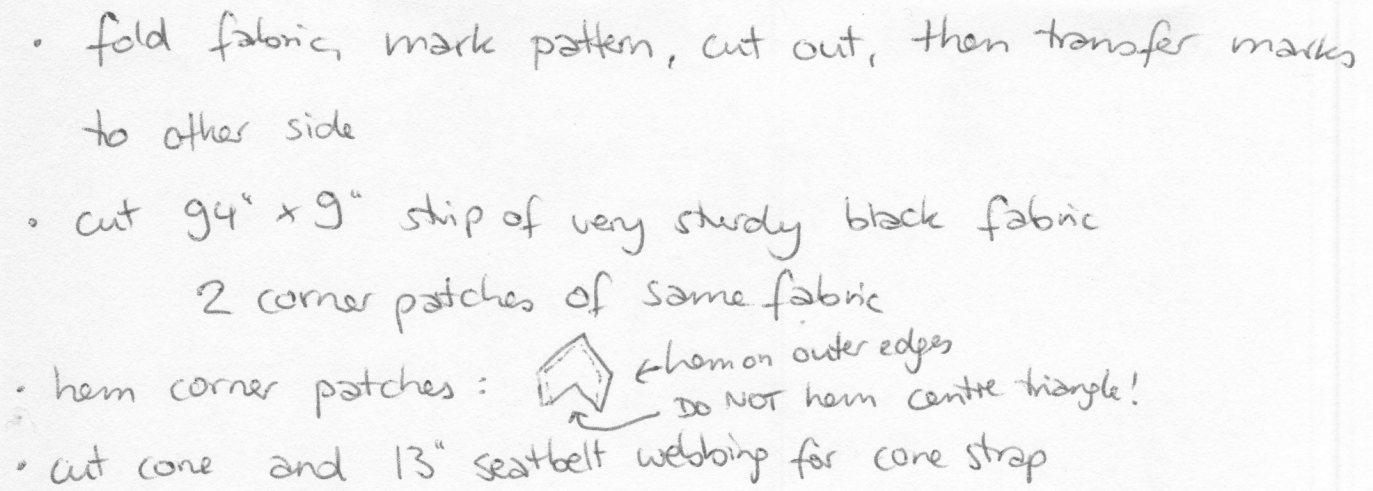 • fold fabric, mark pattern, cut out, then transfer marks
to other side
• cut 94" x 9" strip of very sturdy black fabric
2 corner patches of same fabric
• hem corner patches : ← hem on outer edges
DO NOT hem centre triangle!
• cut cone and 13" seatbelt webbing for cone strap